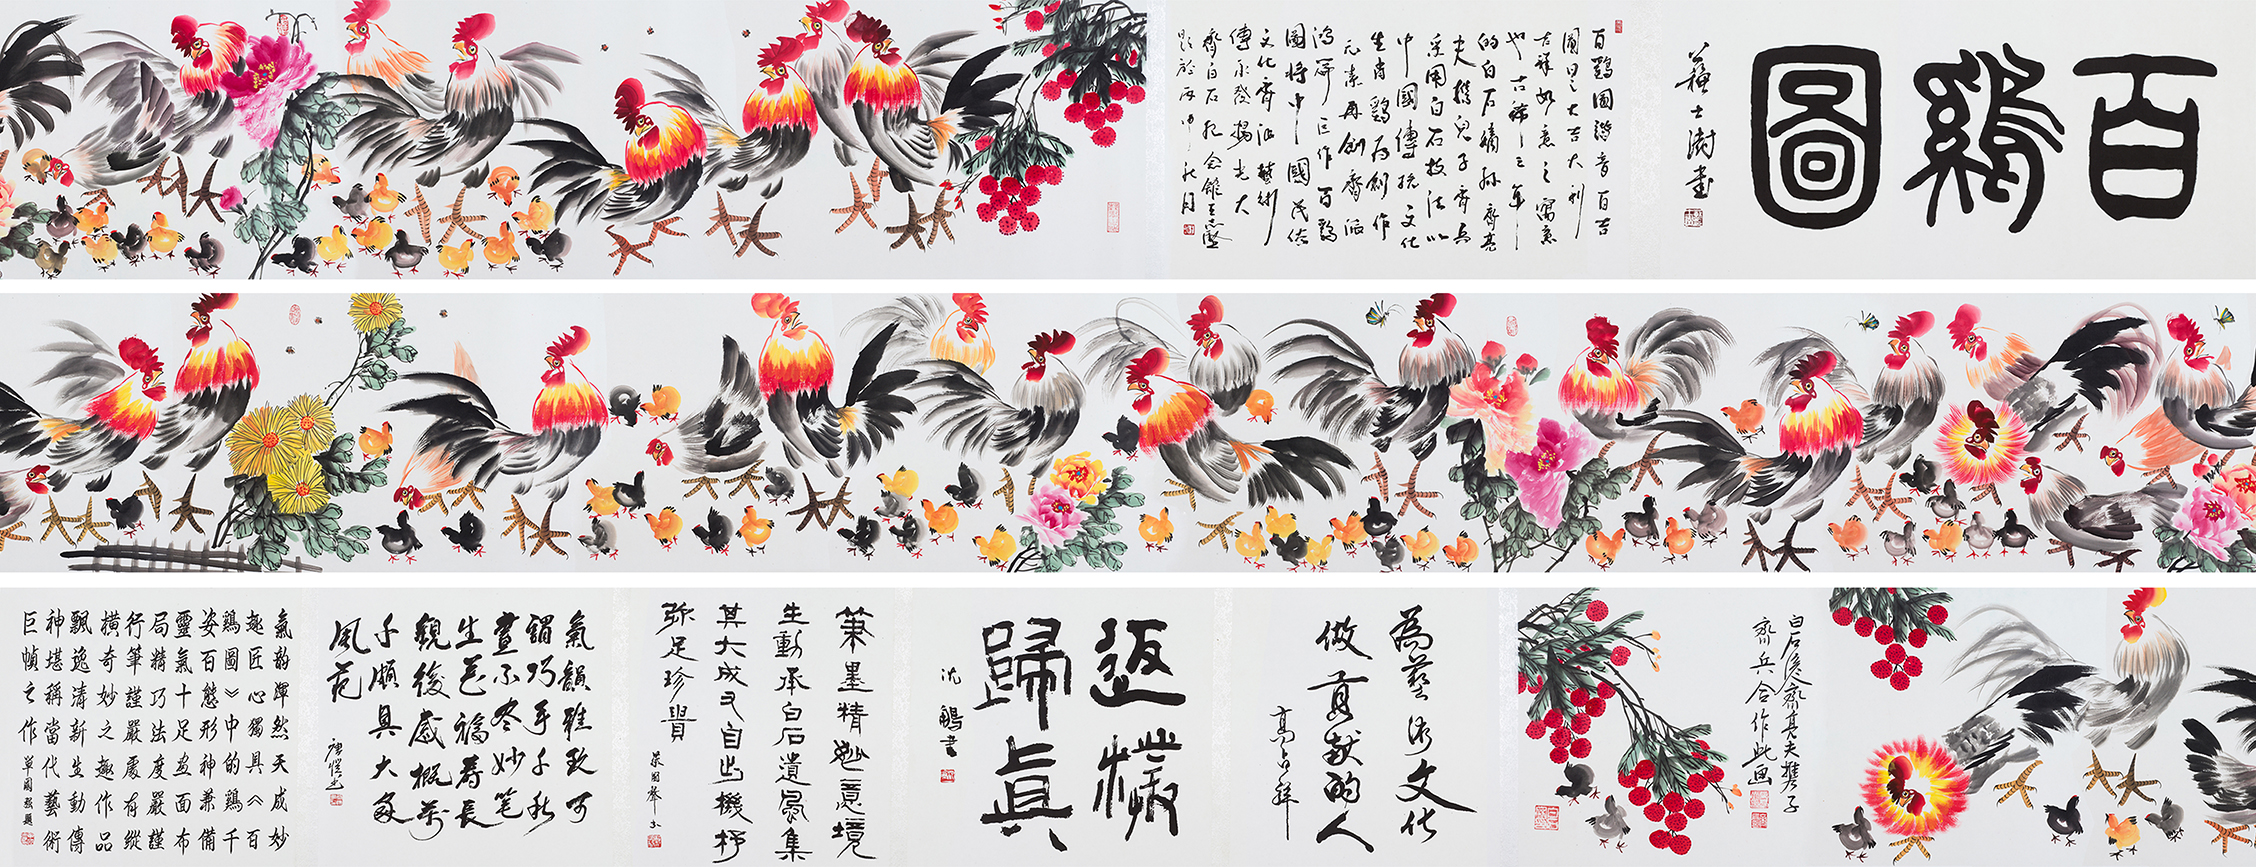 百鷄圖
蘇士澍書
百鷄圖諧音百吉
圖曰之大吉大利
吉祥如意之寓意
也古稀之年
的白石嫡孫齊亮
夫攜兒子齊兵
采用白石技法以
中國傳統文化
生肖鷄為創作
元素再創齊派
鴻篇巨作百鷄
圖將中國民俗
文化齊派藝術
傳承發揚光大
齊白石紀念館王志
題於丙申秋月
白石後齊亮夫攜子
齊兵合作此画
為藝術文化
做貢獻的人
高占祥
返樸
歸真
沈鵬書
筆墨精妙意境
生動承白石遺風集
其大成又自出機杼
弥足珍貴
氣韻雅致可
謂巧手千秋
畫不盡妙筆
生花福壽長
觀後感概萬
千頗具大家
風范
氣韵渾然天成妙
趣匠心獨具《百
鷄圖》中的鷄千
姿百態形神兼備
靈氣十足畫面布
局精巧法度嚴謹
行筆謹嚴處有縱
橫奇妙之趣作品
飄逸清新生動傳
神堪稱當代藝術
巨幀之作
單國強題